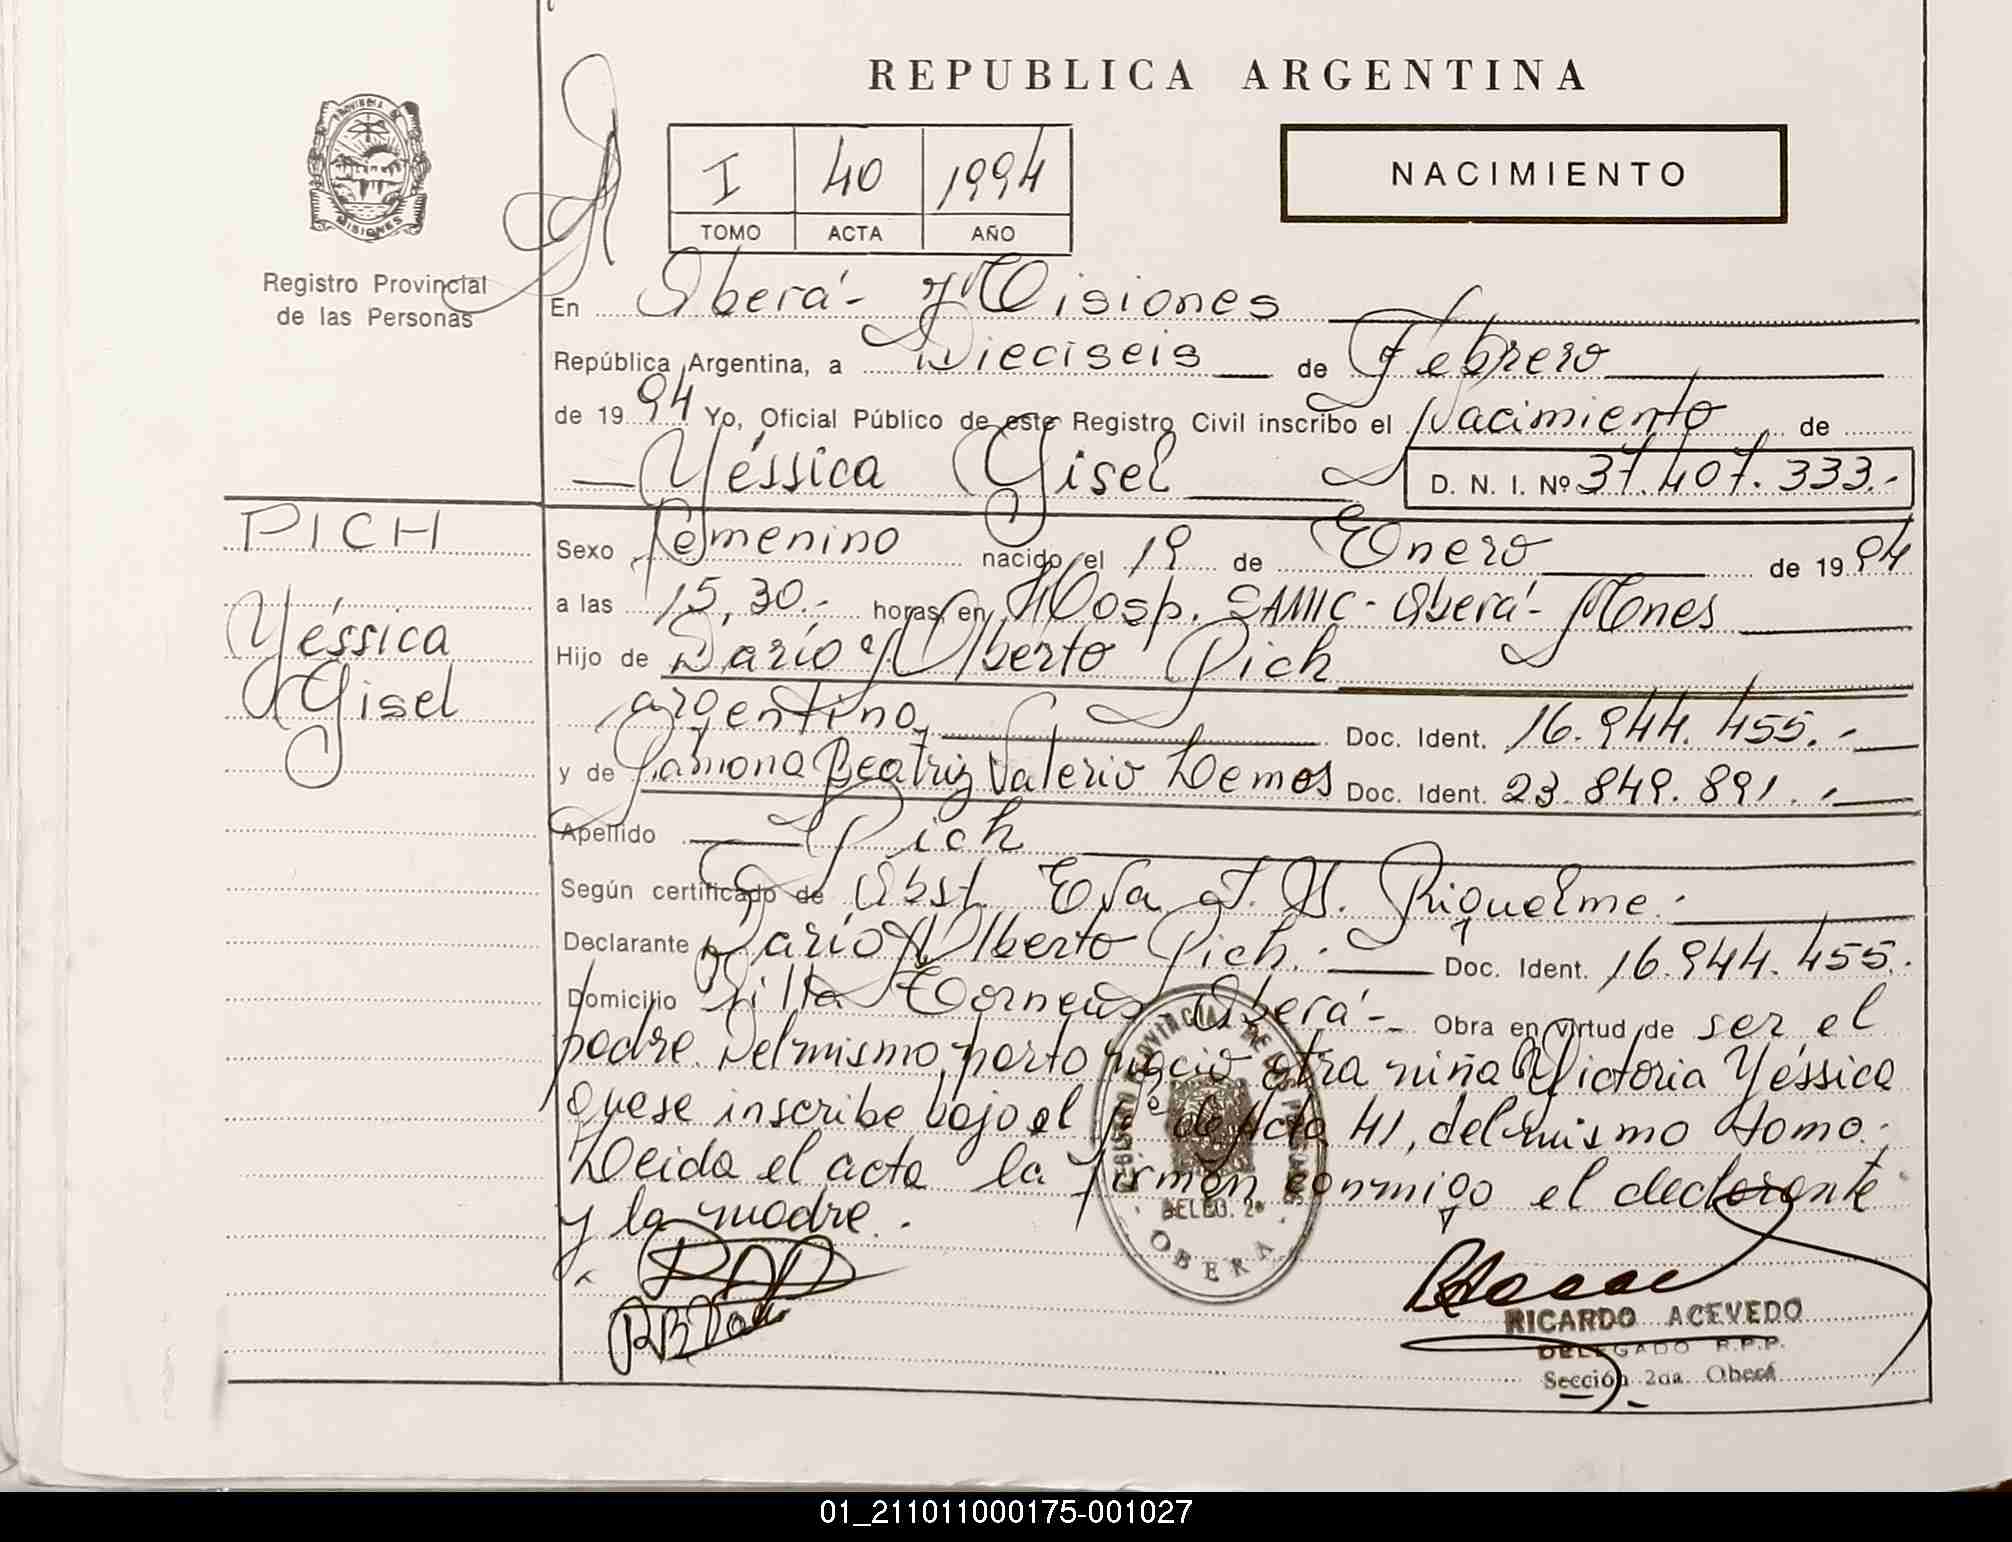 REPUBLICA ARGENTINA
PROVINCIA DE
MISIONES
Registro Provincial
de las Personas
I 40 1994
TOMO ACTA AÑO
NACIMIENTO
En Oberá - Misiones
República Argentina, a Dieciseis de Febrero
de 1994 Yo, Oficial Público de este Registro Civil inscribo el Nacimiento de
Yéssica Gisel D. N. I. Nº 37.407.333.-
PICH
Yéssica
Gisel
Sexo Femenino nacido el 19 de Enero de 1994
a las 15,30.- horas en Hosp. SAMIC - Oberá - Mnes
Hijo de Darío Alberto Pich
argentino, Doc. Ident. 16.944.455.-
y de Ramona Beatriz Valerio Lemos Doc. Ident. 23.849.891.-
Apellido Pich
Según certificado de Obst. Eva Riquelme.-
Declarante Darío Alberto Pich.- Doc. Ident. 16.944.455.
Domicilio Villa Oberá - Obra en virtud de ser el
padre. Del mismo parto nació otra niña Victoria Yéssica
que se inscribe bajo el nº de Acta 41, del mismo tomo.-
Leida el acta la firman conmigo el declarante
y la madre.
REGISTRO PROVINCIAL DE LAS PERSONAS
DELEG. 2ª
OBERA
RICARDO ACEVEDO
DELEGADO R.P.P.
Sección 2da Oberá
01_211011000175-001027